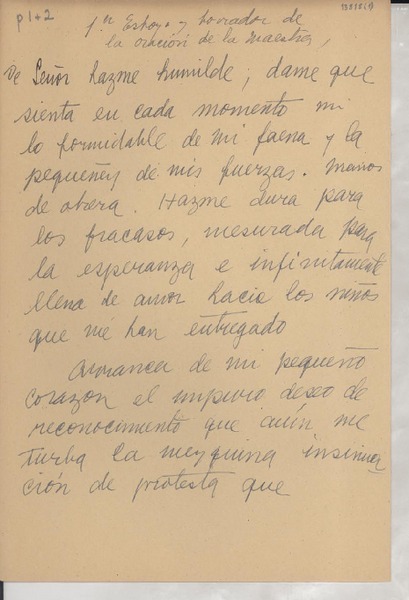 p 1+2
1er Esbozo y borrador de
la oración de la Maestra,
Señor hazme humilde; dame que
sienta en cada momento mi
lo formidable de mi faena y la
pequeñez de mis fuerzas. Manos
de obrera. Hazme dura para
los fracasos, mesurada para
la esperanza e infinitamente
llena de amor hacia los niños
que me han entregado
Arranca de mi pequeño
corazon el impuro deseo de
reconocimiento que aún me
turba la mezquina insinua
ción de protesta que